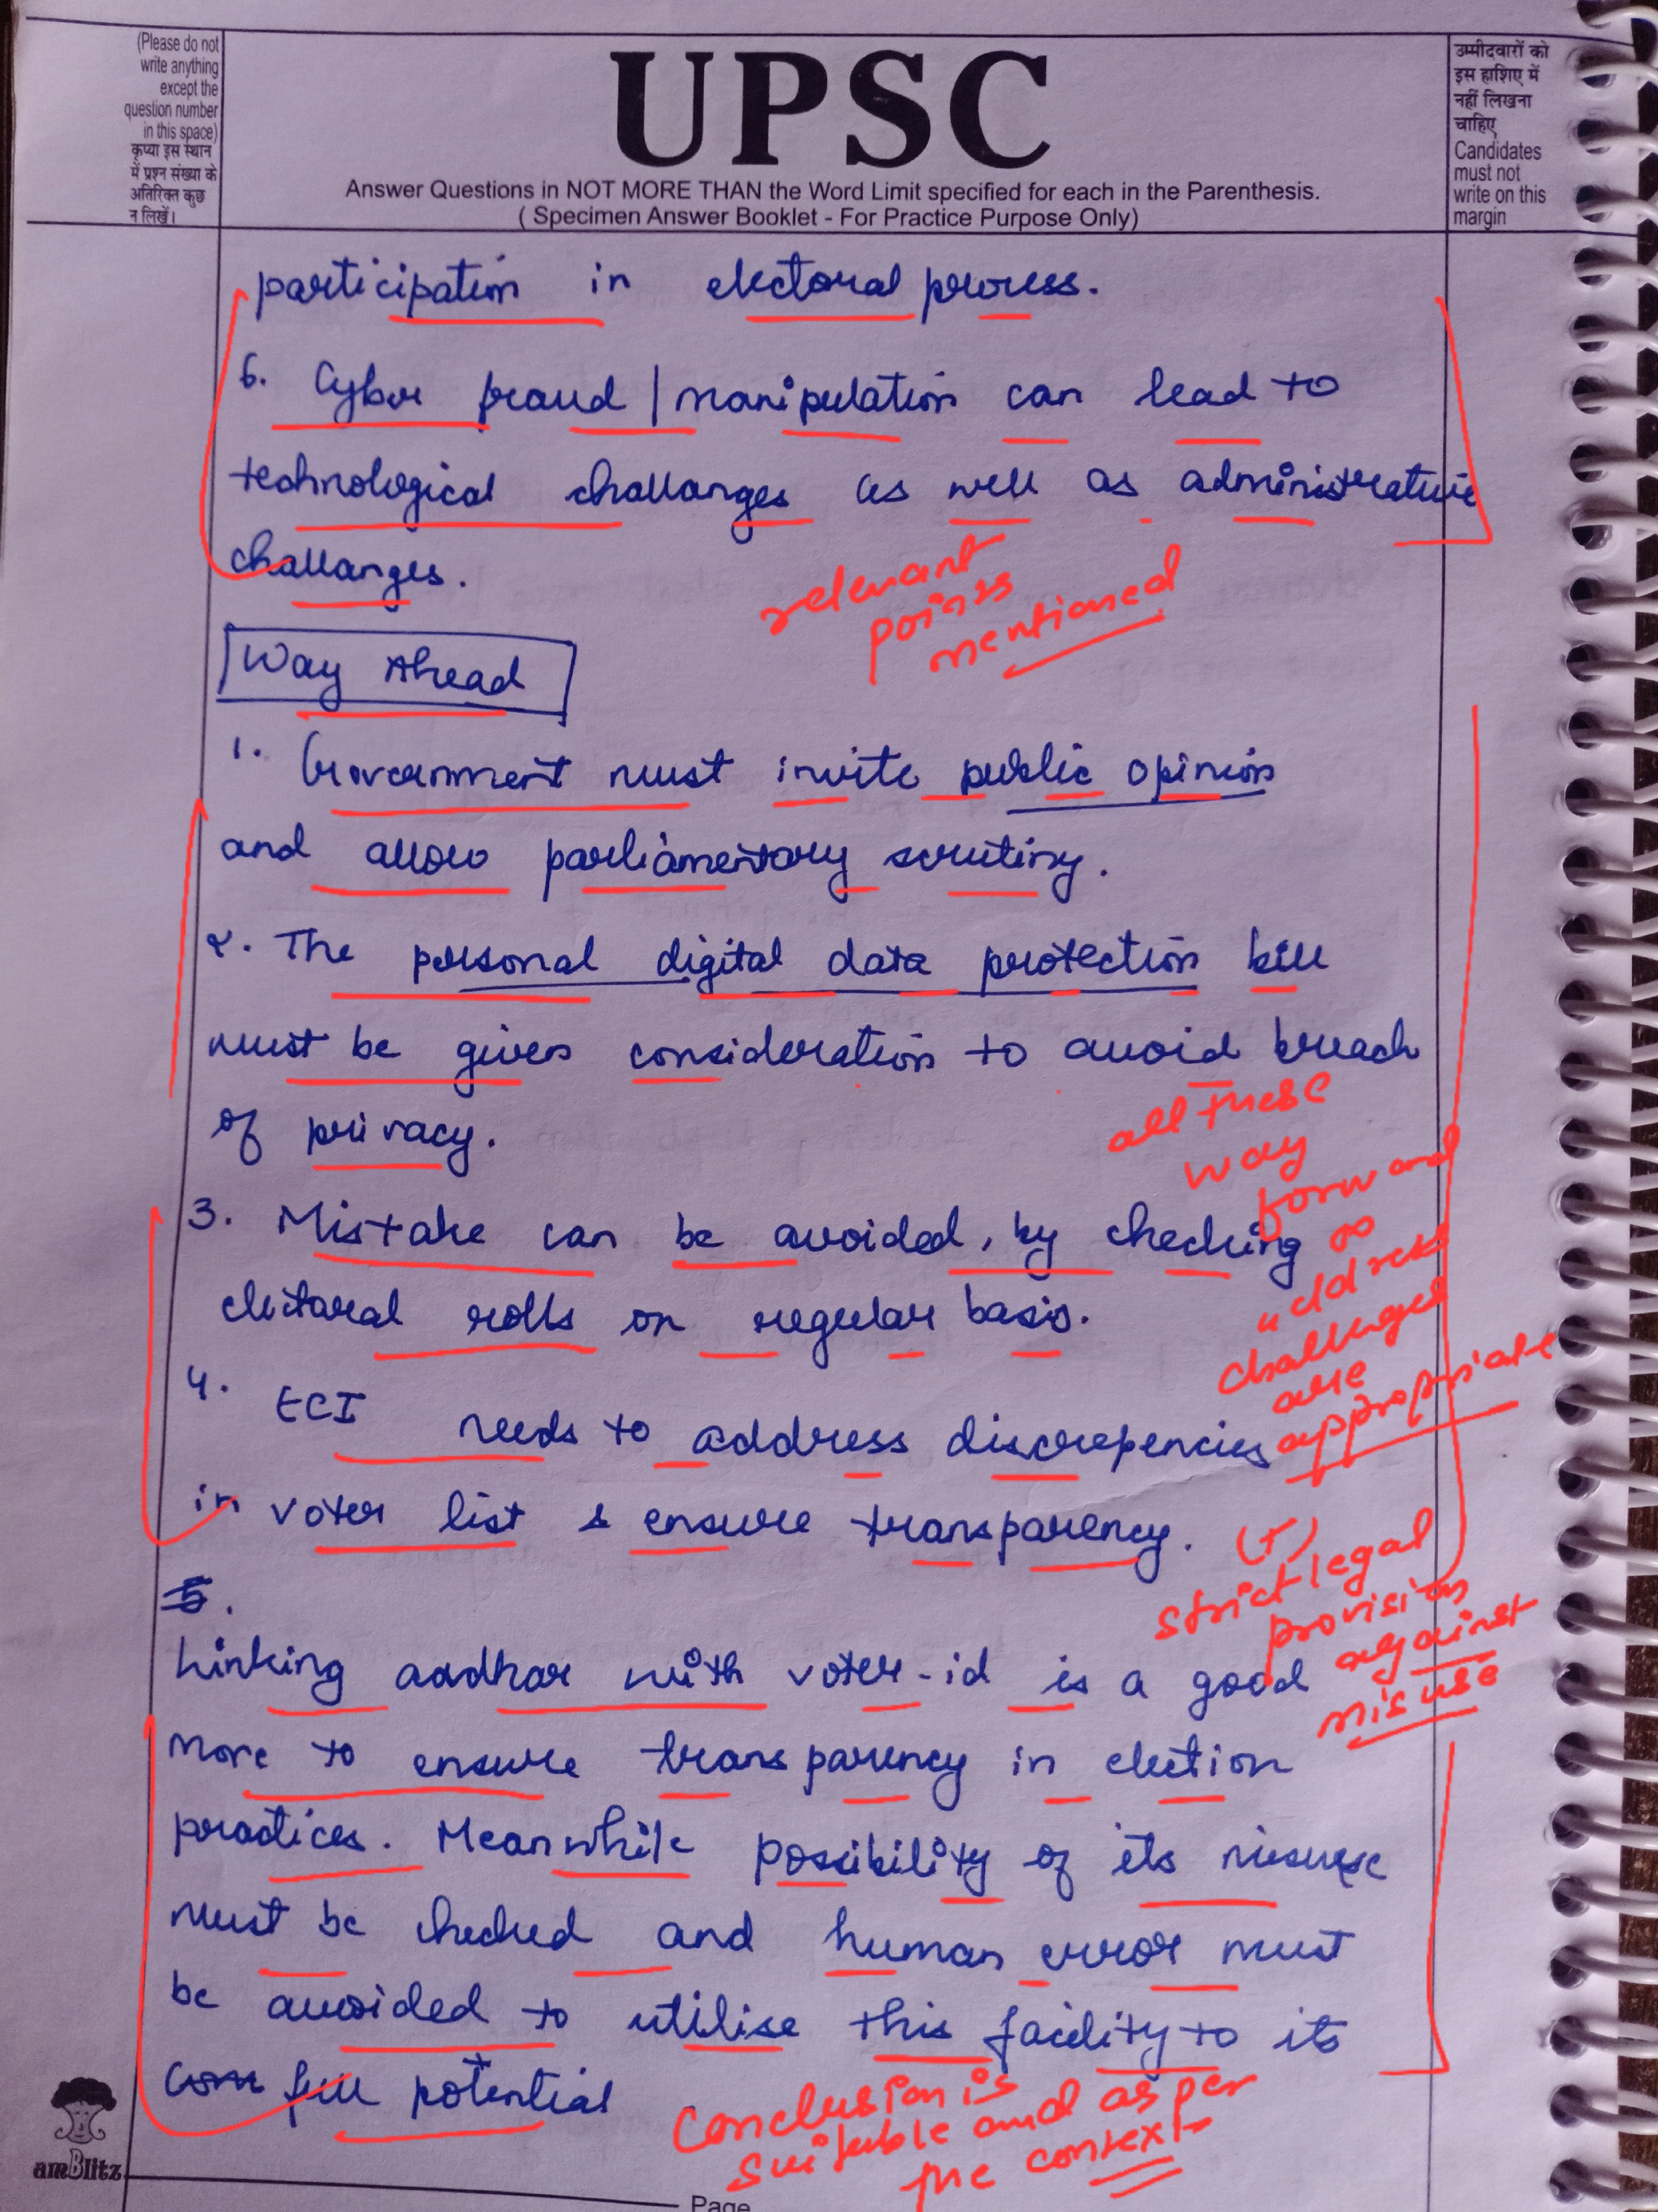 (Please do not
write anything
except the
question number
in this space)
कृप्या इस स्थान
में प्रश्न संख्या के
अतिरिक्त कुछ
न लिखें।
UPSC
Answer Questions in NOT MORE THAN the Word Limit specified for each in the Parenthesis.
( Specimen Answer Booklet - For Practice Purpose Only)
उम्मीदवारों को
इस हाशिए में
नहीं लिखना
चाहिए
Candidates
must not
write on this
margin
participation in electoral process.
6. Cyber fraud / manipulation can lead to
technological challanges as well as administrative
challanges.
relevant
points
mentioned
Way Ahead
1. Government must invite public opinion
and allow parliamentary scrutiny.
2. The personal digital data protection bill
must be given consideration to avoid breach
of privacy.
all these
way
forward
to
address
challenges
are
appropriate
3. Mistake can be avoided, by checking
electoral rolls on regular basis.
4. ECI needs to address discrepencies
in voter list & ensure transparency.
(+)
strict legal
provision
against
misuse
5.
Linking aadhar with voter-id is a good
move to ensure transparency in election
practices. Meanwhile possibility of its misuse
must be checked and human error must
be avoided to utilise this facility to its
full potential
Conclusion is
suitable and as per
the context
amBlitz
Page